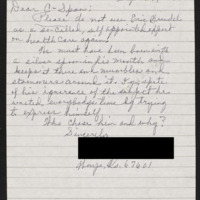 Dear C-Span:
Please do not use Eric
as a so-called, self appointed expert
on health care again.
He must have been born with
a silver spoon in his mouth and
keeps it there and mumbles and
stammers around it. In spite
of his ignorance of the subject he
wasted everybodys time by trying
to express himself.
Who chose him and why?
Sincerely
Ks. 67401